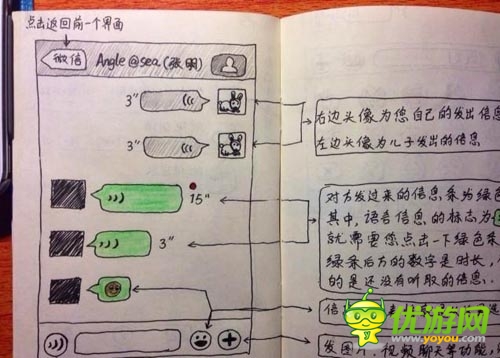 点击返回前一个界面
微信 Angle@sea(张明)
3"
3"
15"
3"
右边头像为您自己的发出信息
左边头像为儿子发出的信息
对方发过来的信息条为绿色
其中,语音信息的标志为
就需要您点击一下绿色条
绿条后方的数字是时长,
的是还没有听取的信息.
信
发图片、视频聊天等功能,
优游网
yoyou.com